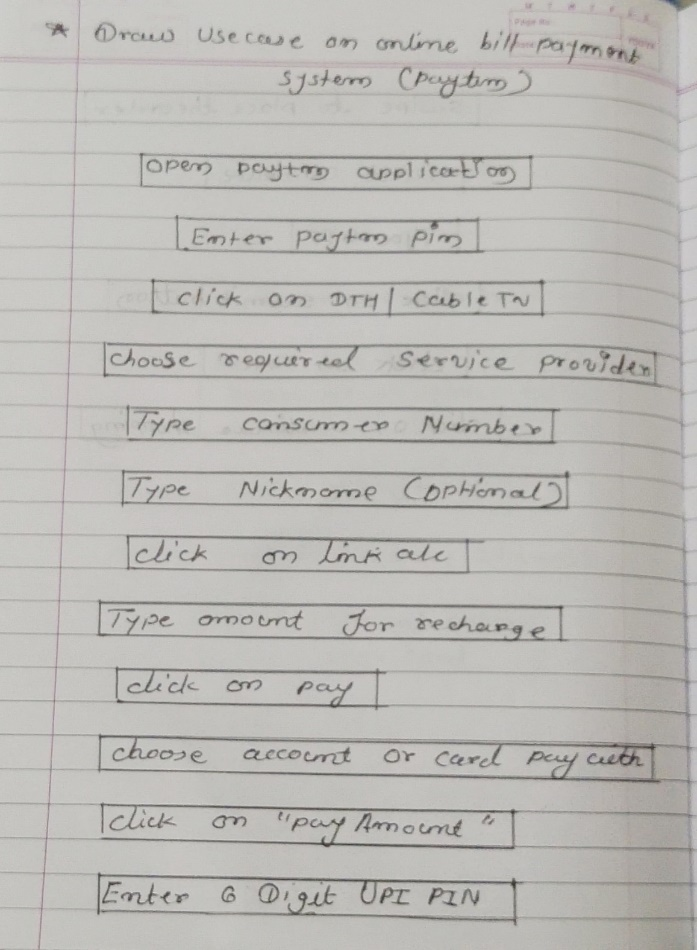 * Draw Usecase on online bill payment
system (paytm)
Open paytm application
Enter paytm pin
click on DTH | Cable TV
choose required service provider
Type consumer Number
Type Nickname (optional)
click on link a/c
Type amount for recharge
click on pay
choose account or card pay with
click on "pay Amount"
Enter 6 Digit UPI PIN